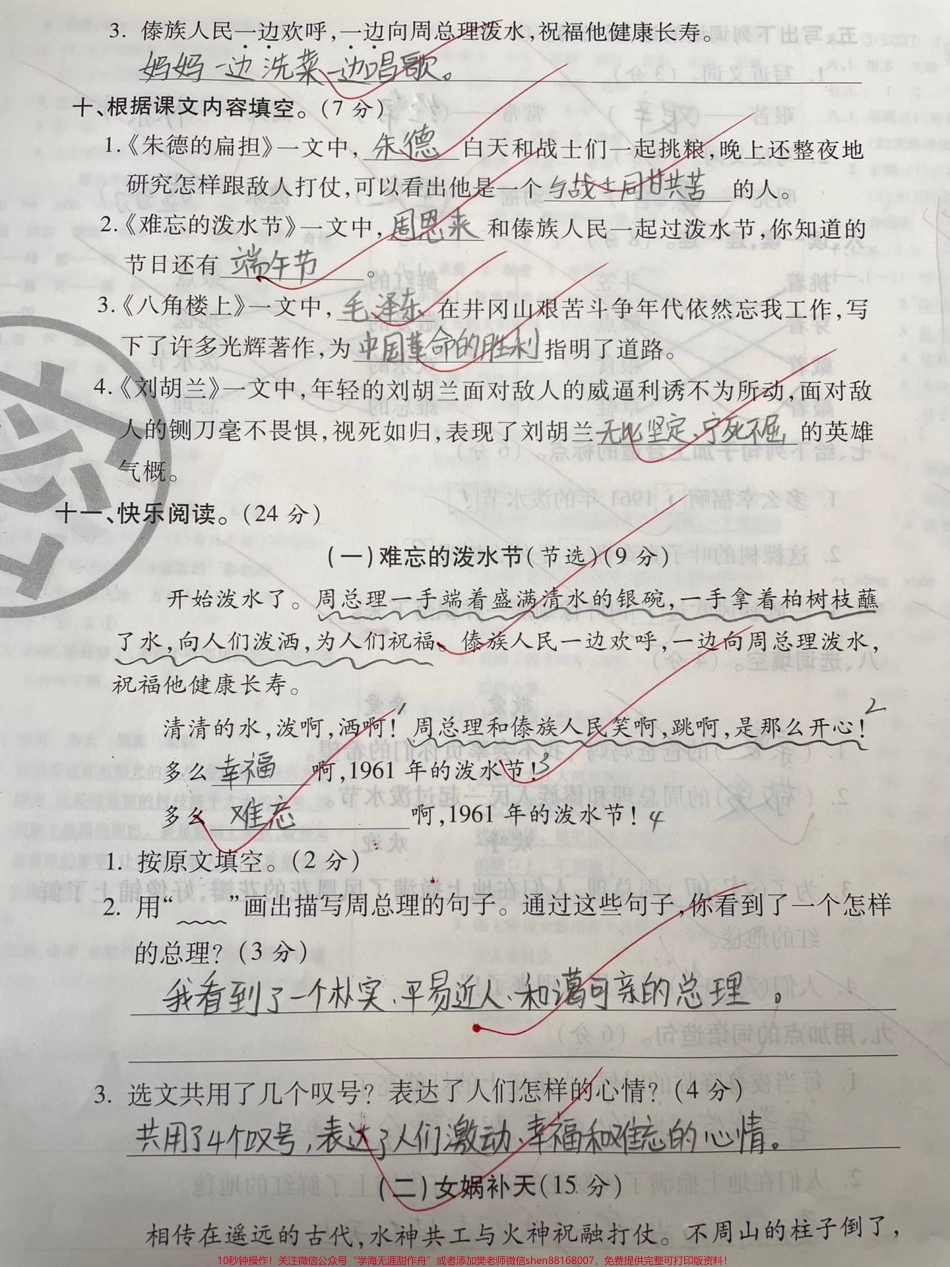 3. 傣族人民一边欢呼,一边向周总理泼水,祝福他健康长寿。
妈妈一边洗菜一边唱歌。
十、根据课文内容填空。(7 分)
1.《朱德的扁担》一文中, 朱德 白天和战士们一起挑粮,晚上还整夜地
研究怎样跟敌人打仗,可以看出他是一个 与战士同甘共苦 的人。
2.《难忘的泼水节》一文中, 周恩来 和傣族人民一起过泼水节,你知道的
节日还有 端午节 。
3.《八角楼上》一文中, 毛泽东 在井冈山艰苦斗争年代依然忘我工作,写
下了许多光辉著作,为 中国革命的胜利 指明了道路。
4.《刘胡兰》一文中,年轻的刘胡兰面对敌人的威逼利诱不为所动,面对敌
人的铡刀毫不畏惧,视死如归,表现了刘胡兰 无比坚定、宁死不屈 的英雄
气概。
十一、快乐阅读。(24 分)
(一)难忘的泼水节(节选)(9 分)
开始泼水了。周总理一手端着盛满清水的银碗,一手拿着柏树枝蘸
了水,向人们泼洒,为人们祝福。傣族人民一边欢呼,一边向周总理泼水,
祝福他健康长寿。
清清的水,泼啊,洒啊!1 周总理和傣族人民笑啊,跳啊,是那么开心!2
多么 幸福 啊,1961 年的泼水节!3
多么 难忘 啊,1961 年的泼水节!4
1. 按原文填空。(2 分)
2. 用“ ”画出描写周总理的句子。通过这些句子,你看到了一个怎样
的总理?(3 分)
我看到了一个朴实、平易近人、和蔼可亲的总理。
3. 选文共用了几个叹号?表达了人们怎样的心情?(4 分)
共用了4个叹号,表达了人们激动、幸福和难忘的心情。
(二)女娲补天(15 分)
相传在遥远的古代,水神共工与火神祝融打仗。不周山的柱子倒了,
10秒钟操作!关注微信公众号“学海无涯甜作舟”或者添加樊老师微信shen88168007,免费提供完整可打印版资料!